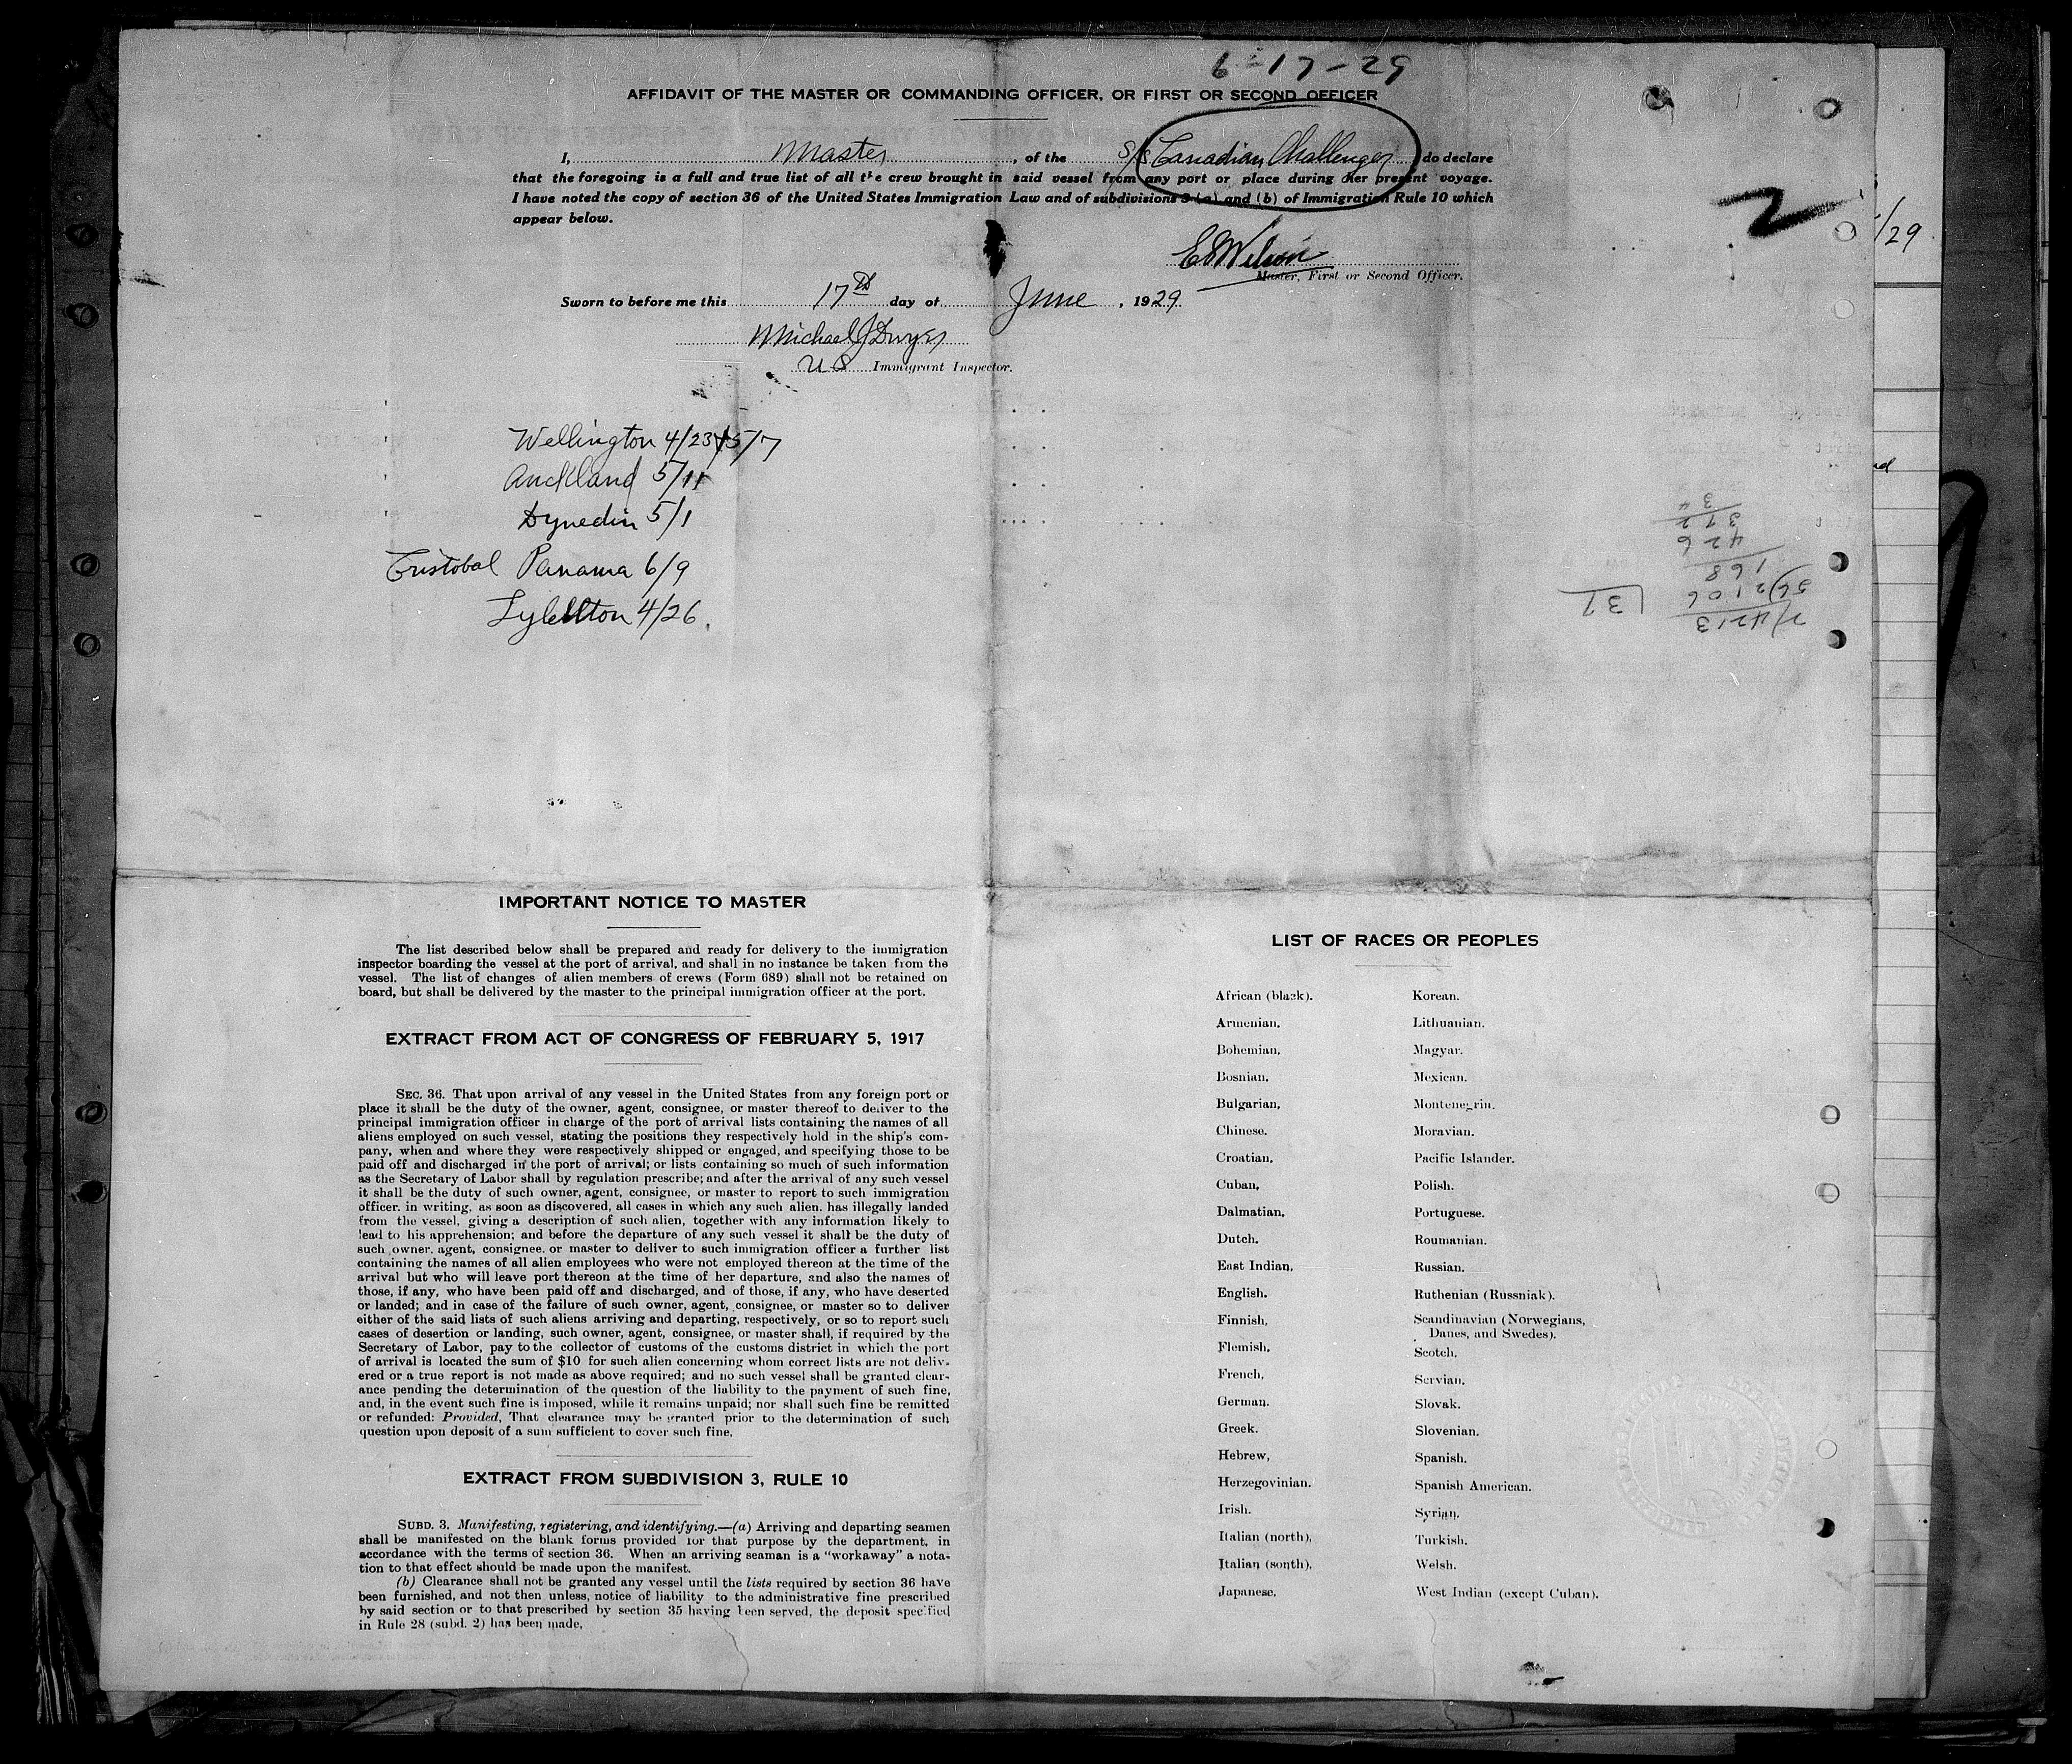 6-17-29
AFFIDAVIT OF THE MASTER OR COMMANDING OFFICER, OR FIRST OR SECOND OFFICER
I, Master, of the S/S Canadian Challenger do declare
that the foregoing is a full and true list of all the crew brought in said vessel from any port or place during her present voyage.
I have noted the copy of section 36 of the United States Immigration Law and of subdivisions 3 (a) and (b) of Immigration Rule 10 which
appear below.
2
/29
E Wilson
Master, First or Second Officer.
Sworn to before me this 17th day of June, 1929.
Michael J Dwyer
US Immigrant Inspector.
Wellington 4/23 + 5/7
Auckland 5/11
Dynedin 5/1
Cristobal Panama 6/9
Lyttelton 4/26.
2/4213
56)2106
37
168
426
392
3
IMPORTANT NOTICE TO MASTER
The list described below shall be prepared and ready for delivery to the immigration
inspector boarding the vessel at the port of arrival, and shall in no instance be taken from the
vessel. The list of changes of alien members of crews (Form 689) shall not be retained on
board, but shall be delivered by the master to the principal immigration officer at the port.
EXTRACT FROM ACT OF CONGRESS OF FEBRUARY 5, 1917
SEC. 36. That upon arrival of any vessel in the United States from any foreign port or
place it shall be the duty of the owner, agent, consignee, or master thereof to deliver to the
principal immigration officer in charge of the port of arrival lists containing the names of all
aliens employed on such vessel, stating the positions they respectively hold in the ship's com-
pany, when and where they were respectively shipped or engaged, and specifying those to be
paid off and discharged in the port of arrival; or lists containing so much of such information
as the Secretary of Labor shall by regulation prescribe; and after the arrival of any such vessel
it shall be the duty of such owner, agent, consignee, or master to report to such immigration
officer, in writing, as soon as discovered, all cases in which any such alien has illegally landed
from the vessel, giving a description of such alien, together with any information likely to
lead to his apprehension; and before the departure of any such vessel it shall be the duty of
such owner, agent, consignee, or master to deliver to such immigration officer a further list
containing the names of all alien employees who were not employed thereon at the time of the
arrival but who will leave port thereon at the time of her departure, and also the names of
those, if any, who have been paid off and discharged, and of those, if any, who have deserted
or landed; and in case of the failure of such owner, agent, consignee, or master so to deliver
either of the said lists of such aliens arriving and departing, respectively, or so to report such
cases of desertion or landing, such owner, agent, consignee, or master shall, if required by the
Secretary of Labor, pay to the collector of customs of the customs district in which the port
of arrival is located the sum of $10 for such alien concerning whom correct lists are not deliv-
ered or a true report is not made as above required; and no such vessel shall be granted clear-
ance pending the determination of the question of the liability to the payment of such fine,
and, in the event such fine is imposed, while it remains unpaid; nor shall such fine be remitted
or refunded: Provided, That clearance may be granted prior to the determination of such
question upon deposit of a sum sufficient to cover such fine.
EXTRACT FROM SUBDIVISION 3, RULE 10
SUBD. 3. Manifesting, registering, and identifying.—(a) Arriving and departing seamen
shall be manifested on the blank forms provided for that purpose by the department, in
accordance with the terms of section 36. When an arriving seaman is a "workaway" a nota-
tion to that effect should be made upon the manifest.
(b) Clearance shall not be granted any vessel until the lists required by section 36 have
been furnished, and not then unless, notice of liability to the administrative fine prescribed
by said section or to that prescribed by section 35 having been served, the deposit specified
in Rule 28 (subd. 2) has been made.
LIST OF RACES OR PEOPLES
African (black).
Armenian.
Bohemian.
Bosnian.
Bulgarian.
Chinese.
Croatian.
Cuban.
Dalmatian.
Dutch.
East Indian.
English.
Finnish.
Flemish.
French.
German.
Greek.
Hebrew.
Herzegovinian.
Irish.
Italian (north).
Italian (south).
Japanese.
Korean.
Lithuanian.
Magyar.
Mexican.
Montenegrin.
Moravian.
Pacific Islander.
Polish.
Portuguese.
Roumanian.
Russian.
Ruthenian (Russniak).
Scandinavian (Norwegians,
Danes, and Swedes).
Scotch.
Servian.
Slovak.
Slovenian.
Spanish.
Spanish American.
Syrian.
Turkish.
Welsh.
West Indian (except Cuban).